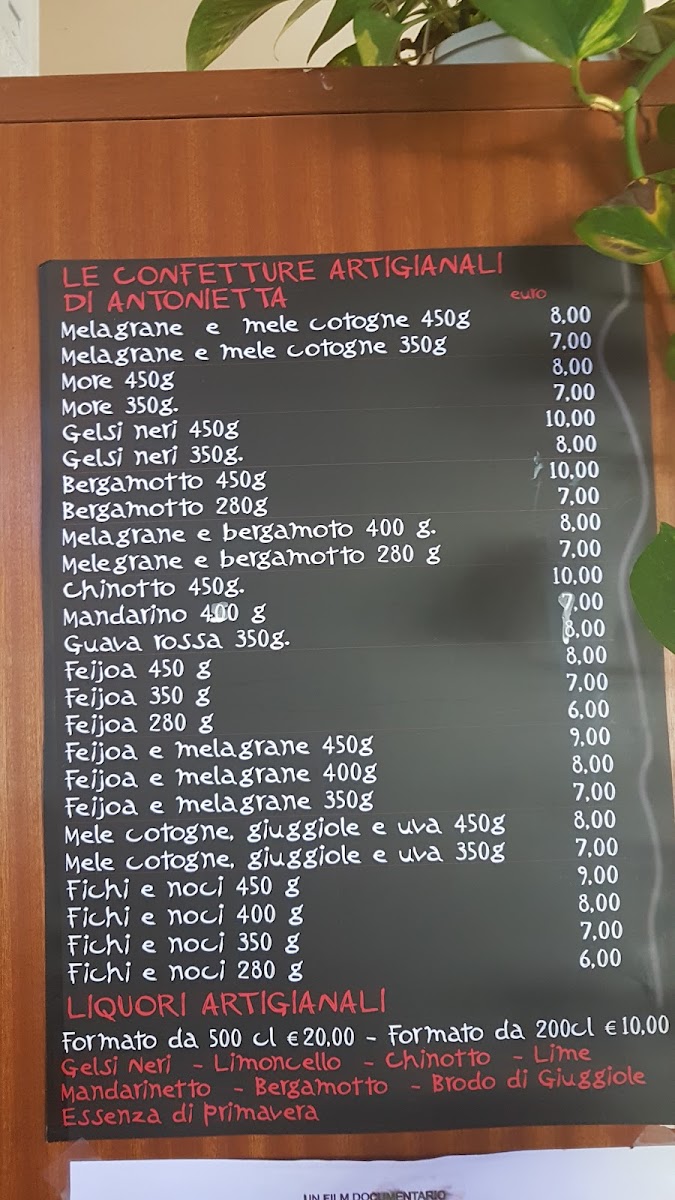 LE CONFETTURE ARTIGIANALI
DI ANTONIETTA euro
Melagrane e mele cotogne 450g 8,00
Melagrane e mele cotogne 350g 7,00
More 450g 8,00
More 350g. 7,00
Gelsi neri 450g 10,00
Gelsi neri 350g. 8,00
Bergamotto 450g 10,00
Bergamotto 280g 7,00
Melagrane e bergamoto 400 g. 8,00
Melegrane e bergamotto 280 g 7,00
Chinotto 450g. 10,00
Mandarino 400 g 7,00
Guava rossa 350g. 8,00
Feijoa 450 g 8,00
Feijoa 350 g 7,00
Feijoa 280 g 6,00
Feijoa e melagrane 450g 9,00
Feijoa e melagrane 400g 8,00
Feijoa e melagrane 350g 7,00
Mele cotogne, giuggiole e uva 450g 8,00
Mele cotogne, giuggiole e uva 350g 7,00
Fichi e noci 450 g 9,00
Fichi e noci 400 g 8,00
Fichi e noci 350 g 7,00
Fichi e noci 280 g 6,00
LIQUORI ARTIGIANALI
Formato da 500 cl €20,00 - Formato da 200cl €10,00
Gelsi Neri - Limoncello - Chinotto - Lime
Mandarinetto - Bergamotto - Brodo di Giuggiole
Essenza di primavera
UN FILM DOCUMENTARIO